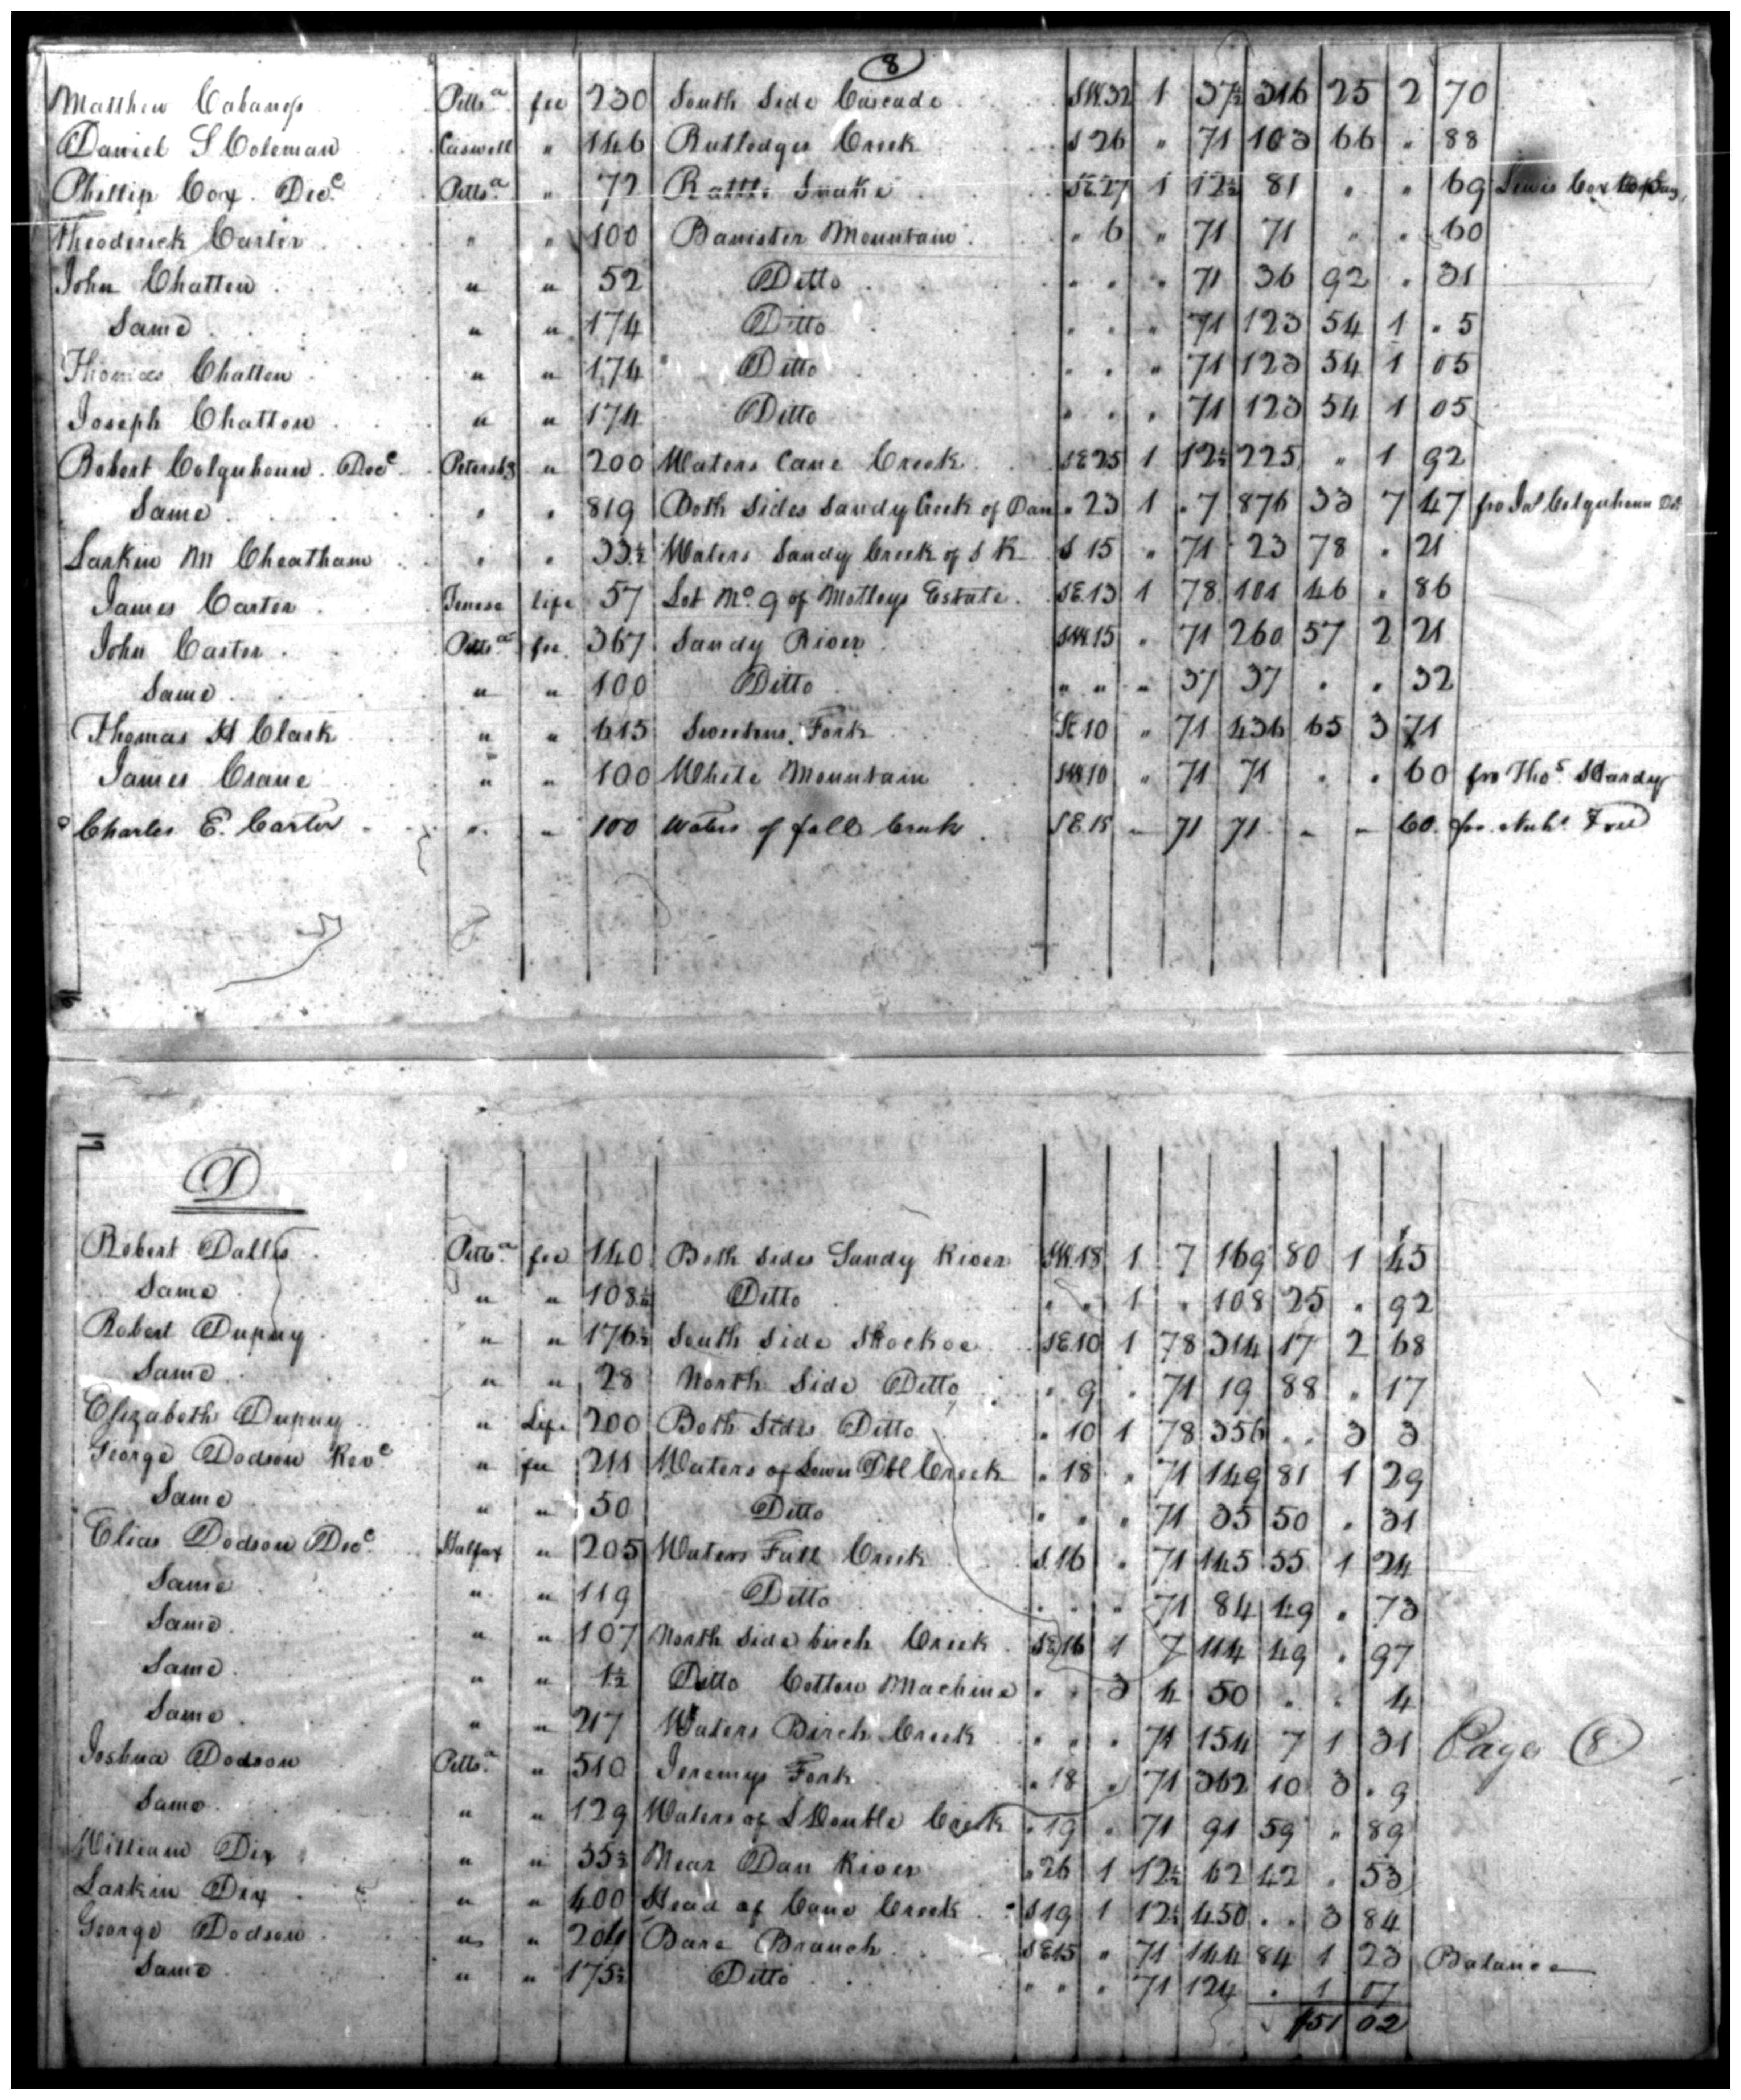 8
Matthew Cabaness Pittsa. fee 230 South Side Cascade SW.32 1 37½ 316 25 2 70
Daniel S Coleman Caswell " 146 Rutledges Creek S 26 " 71 103 66 " 88
Phillip Cox. Decd. Pittsa. " 72 Rattle Snake SE.27 1 12½ 81 " " 69 Lewis Cox
Theoderick Carter " " 100 Banister Mountain " 6 " 71 71 " " 60
John Chatten " " 52 Ditto " " " 71 36 92 " 31
Same " " 174 Ditto " " " 71 123 54 1 " 5
Thomas Chatten " " 174 Ditto " " " 71 123 54 1 05
Joseph Chatten " " 174 Ditto " " " 71 123 54 1 05
Robert Colquhoun. Decd. Petersbg " 200 Waters Cane Creek SE 25 1 12½ 225 " 1 92
Same " " 819 Both Sides Sandy Creek of Dan " 23 1 " 7 876 33 7 47 fro Jas Colquhoun
Larkin M Cheatham " " 33½ Waters Sandy Creek of S R S 15 " 71 23 78 " 21
James Carter Tenese life 57 Lot No. 9 of Motleys Estate SE.13 1 78 101 46 " 86
John Carter Pittsa. fee 367 Sandy River SW.15 " 71 260 57 2 21
Same " " 100 Ditto " " " 37 37 " " 32
Thomas H Clark " " 615 Sweetens Fork SE 10 " 71 436 65 3 71
James Crane " " 100 White Mountain SW 10 " 71 71 " " 60 fro Thos. Hardy
Charles E. Carter " " 100 Waters of fall Creek SE.15 " 71 71 " " 60 fro. Nath.
D
Robert Dallis Pittsa. fee 140 Both Sides Sandy River SW.18 1 7 169 80 1 45
Same " " 108¼ Ditto " " 1 " 108 25 " 92
Robert Dupuy " " 176½ South Side Stockoe SE10 1 78 314 17 2 68
Same " " 28 North Side Ditto " 9 " 71 19 88 " 17
Elizabeth Dupuy " Life 200 Both Sides Ditto " 10 1 78 356 " " 3 3
George Dodson Revd " fee 211 Waters of Lower Dbl Creek " 18 " 71 149 81 1 29
Same " " 50 Ditto " " " 71 35 50 " 31
Elias Dodson Decd. Halfax " 205 Waters Fall Creek S.16 " 71 145 55 1 24
Same " " 119 Ditto " " " 71 84 49 " 73
Same " " 107 North Side birch Creek SE,16 1 7 114 49 " 97
Same " " 1½ Ditto Cotton Machine " " 3 4 50 " " 4
Same " " 217 Waters Birch Creek " " " 71 154 7 1 31 Page 8
Joshua Dodson Pittsa. " 510 Jeremys Fork " 18 " 71 362 10 3 " 9
Same " " 129 Waters of S Double Creek " 19 " 71 91 59 " 89
William Dix " " 55½ Near Dan River " 26 1 12½ 62 42 " 53
Larkin Dix " " 400 Head of Cane Creek S 19 1 12½ 450 " " 3 84
George Dodson " " 204 Bare Branch SE15 " 71 144 84 1 23 Balance
Same " " 175½ Ditto " " " 71 124 " 1 07
151 02